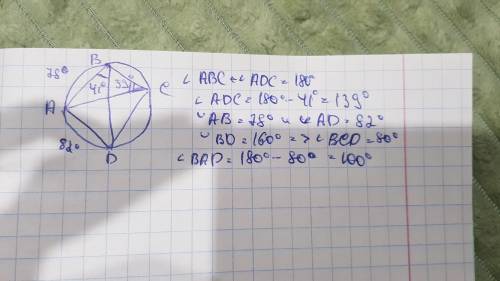 B
78°
41° 39°
A
C
82°
D
∠ ABC + ∠ ADC = 180°
∠ ADC = 180° - 41° = 139°
◡ AB = 78° и ◡ AD = 82°
◡ BD = 160° => ∠ BCD = 80°
∠ BAD = 180° - 80° = 100°